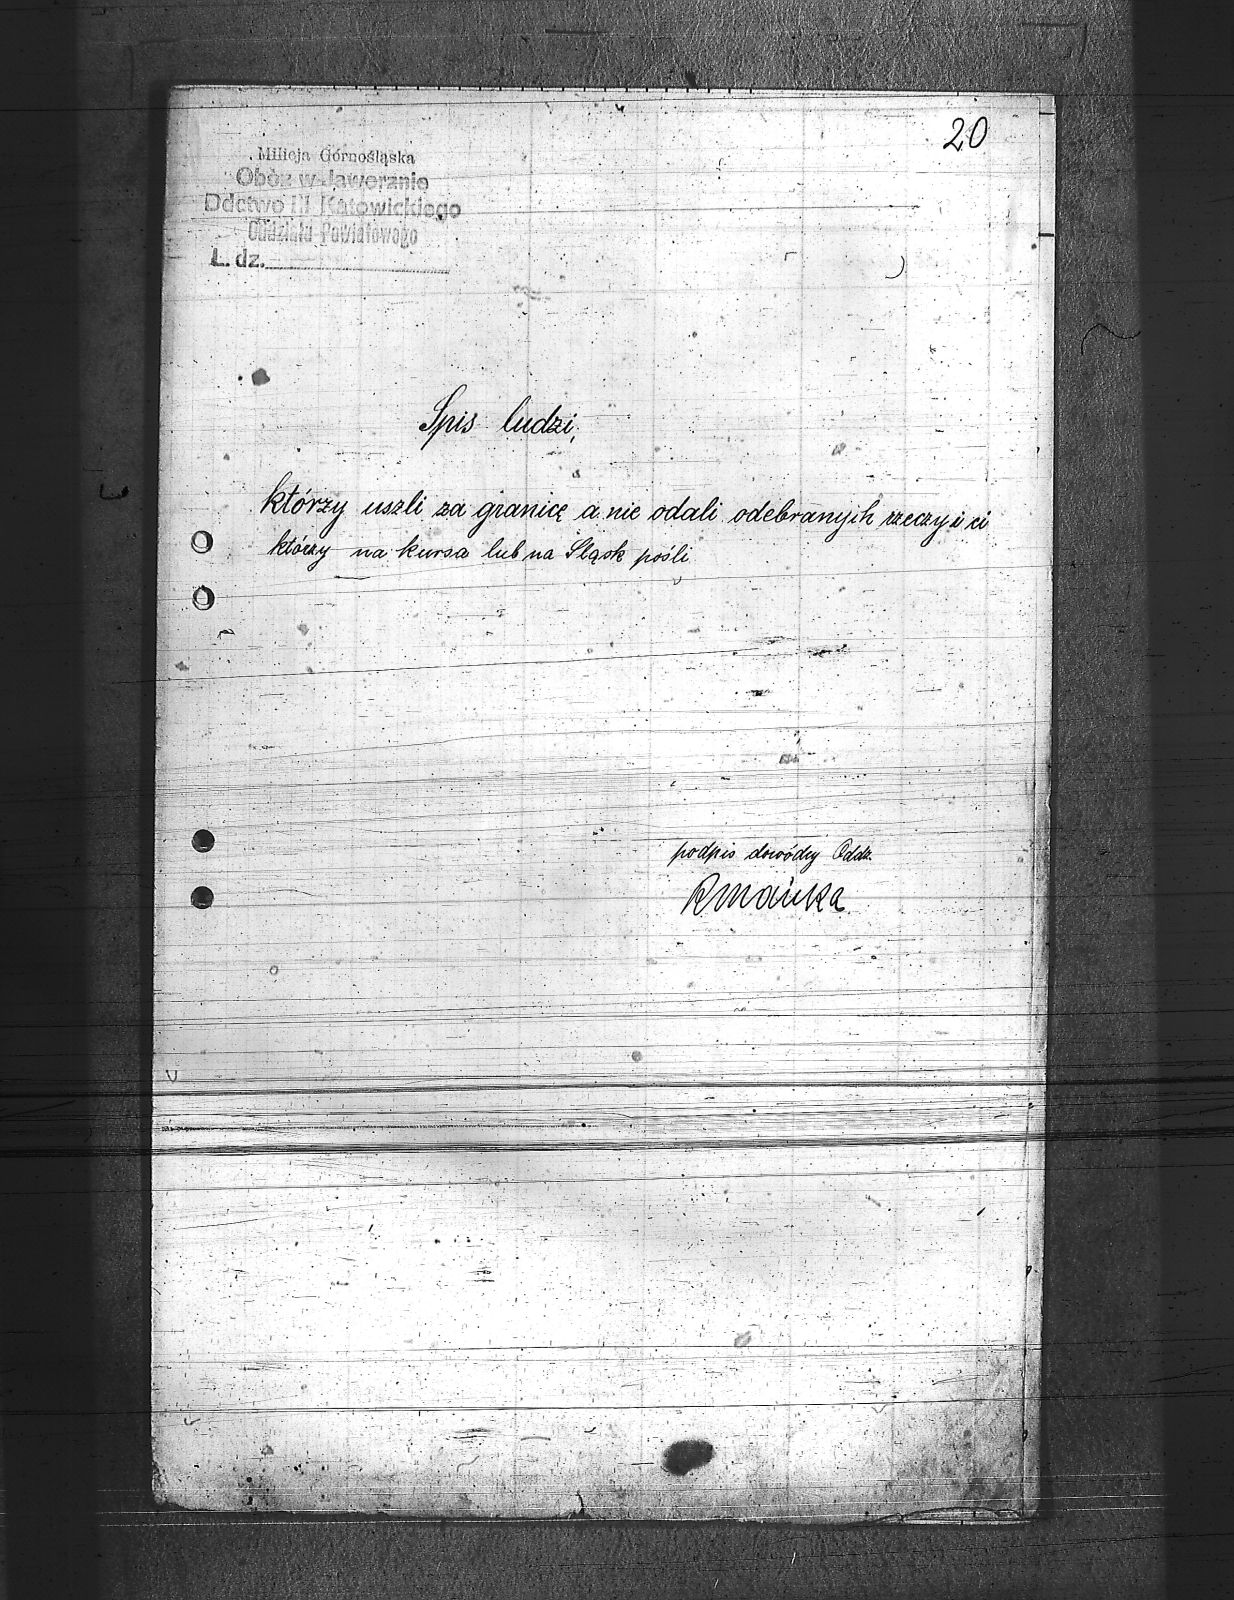 20
Milicja Górnośląska
Obóz w Jaworznie
Ddctwo III Katowickiego
Oddziału Powiatowego
L. dz.
Spis ludzi,
którzy uszli za granicę a nie odali odebranych rzeczy i ci
którzy na kursa lub na Śląsk pośli
podpis dowódcy Oddz.